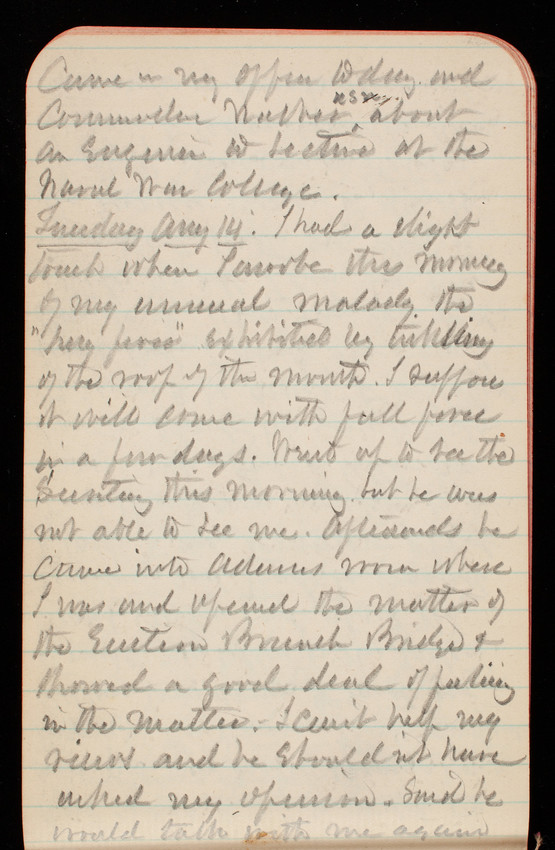 Came in my office today and
Commander  USN, about
an Engineer to lecture at the
Naval War College.
Tuesday Aug 14. I had a slight
touch when I awoke this morning
of my annual malady the
"hay fever" exhibited by tickling
of the roof of the mouth. I suppose
it will come with full force
in a few days. Went up to see the
Secretary this morning but he was
not able to see me. Afterwards he
came into Adams room where
I was and opened the matter of
the Eastern Branch Bridge &
showed a good deal of feeling
in the matter. I cant help my
views and he should nt have
asked my opinion. Said he
would talk with me again